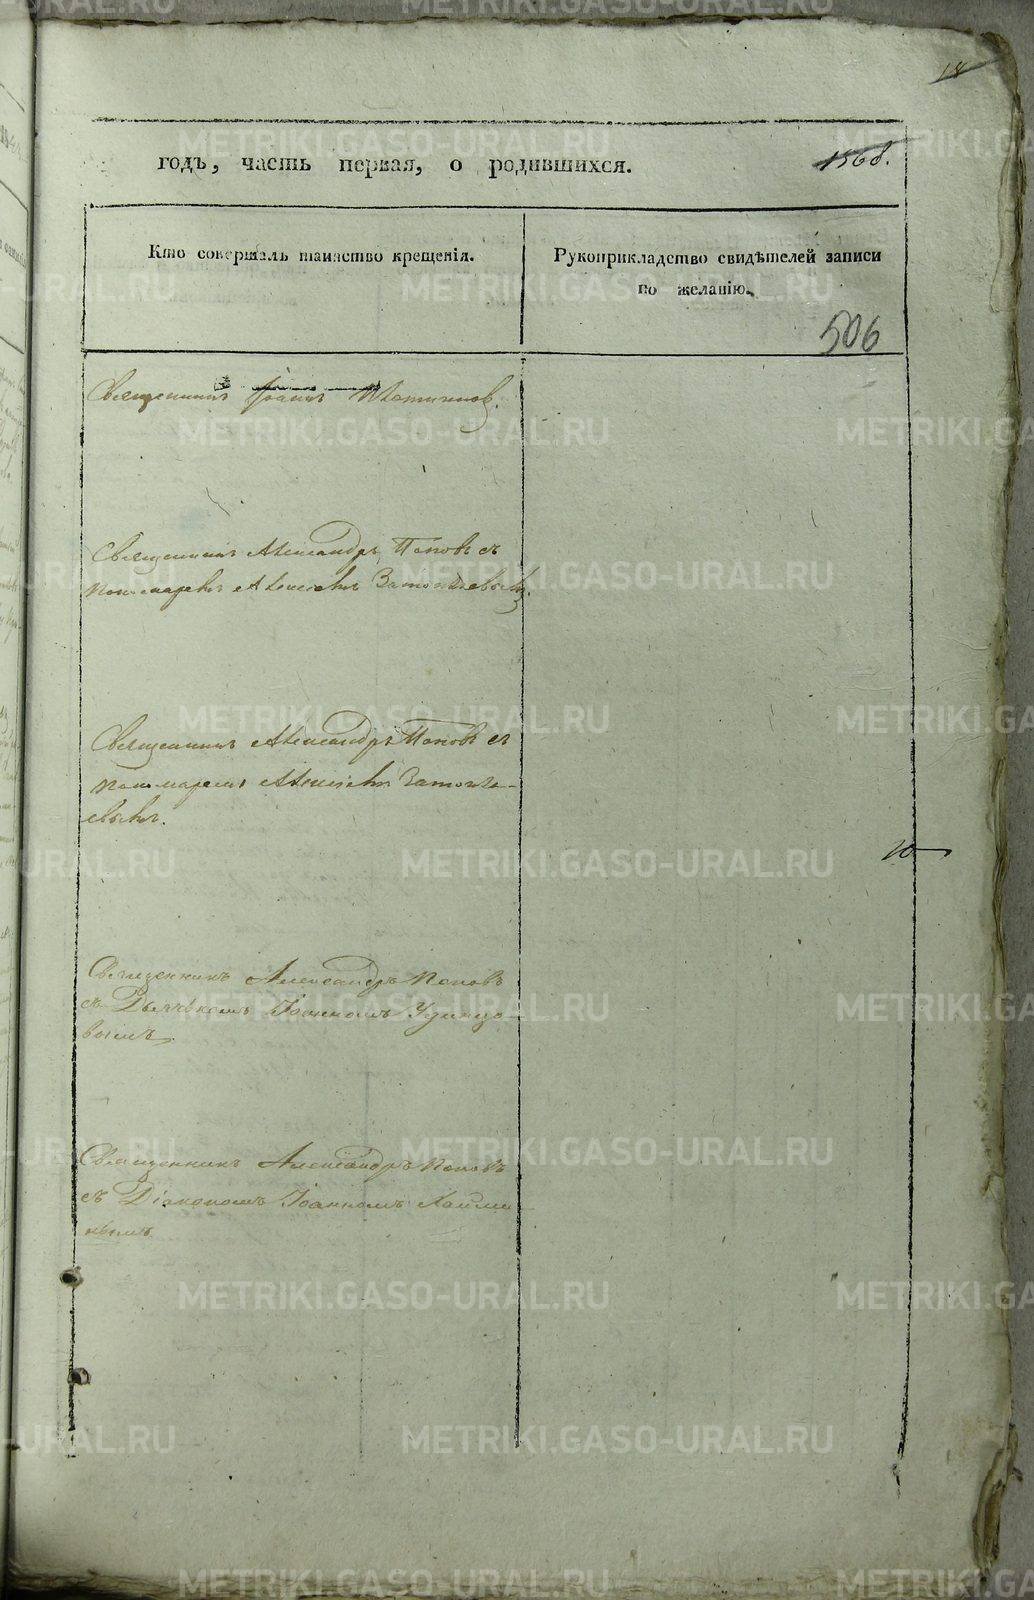 18
годъ, часть первая, о родившихся.
1568.
Кто совершалъ таинство крещенія.
Рукоприкладство свидѣтелей записи
по желанію.
506
Священникъ Іоаннъ
Священникъ Александръ Поповъ съ
пономаремъ Алексѣемъ Затопляевымъ.
Священникъ Александръ Поповъ съ
пономаремъ Алексѣемъ Затопля-
евымъ.
10
Священникъ Александръ Поповъ
съ Дьячкомъ Іоанномъ Удинцо-
вымъ.
Священникъ Александръ Поповъ
съ Діакономъ Іоанномъ
METRIKI.GASO-URAL.RU